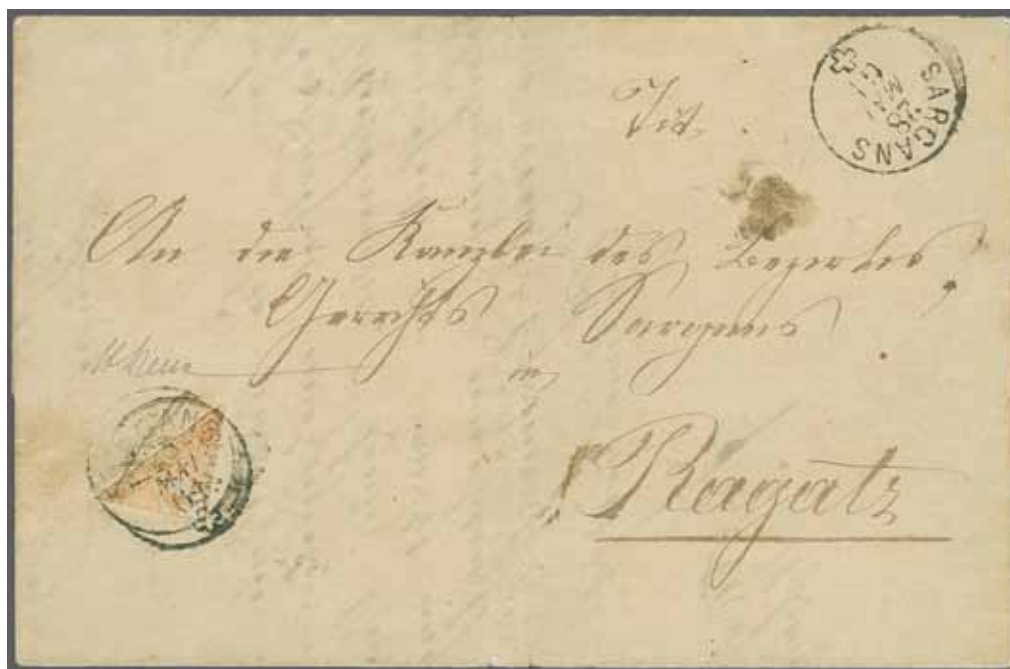 SARGANS
28
An die Kanzlei des Bezirkes
Gerichts Sargans
in
Ragatz